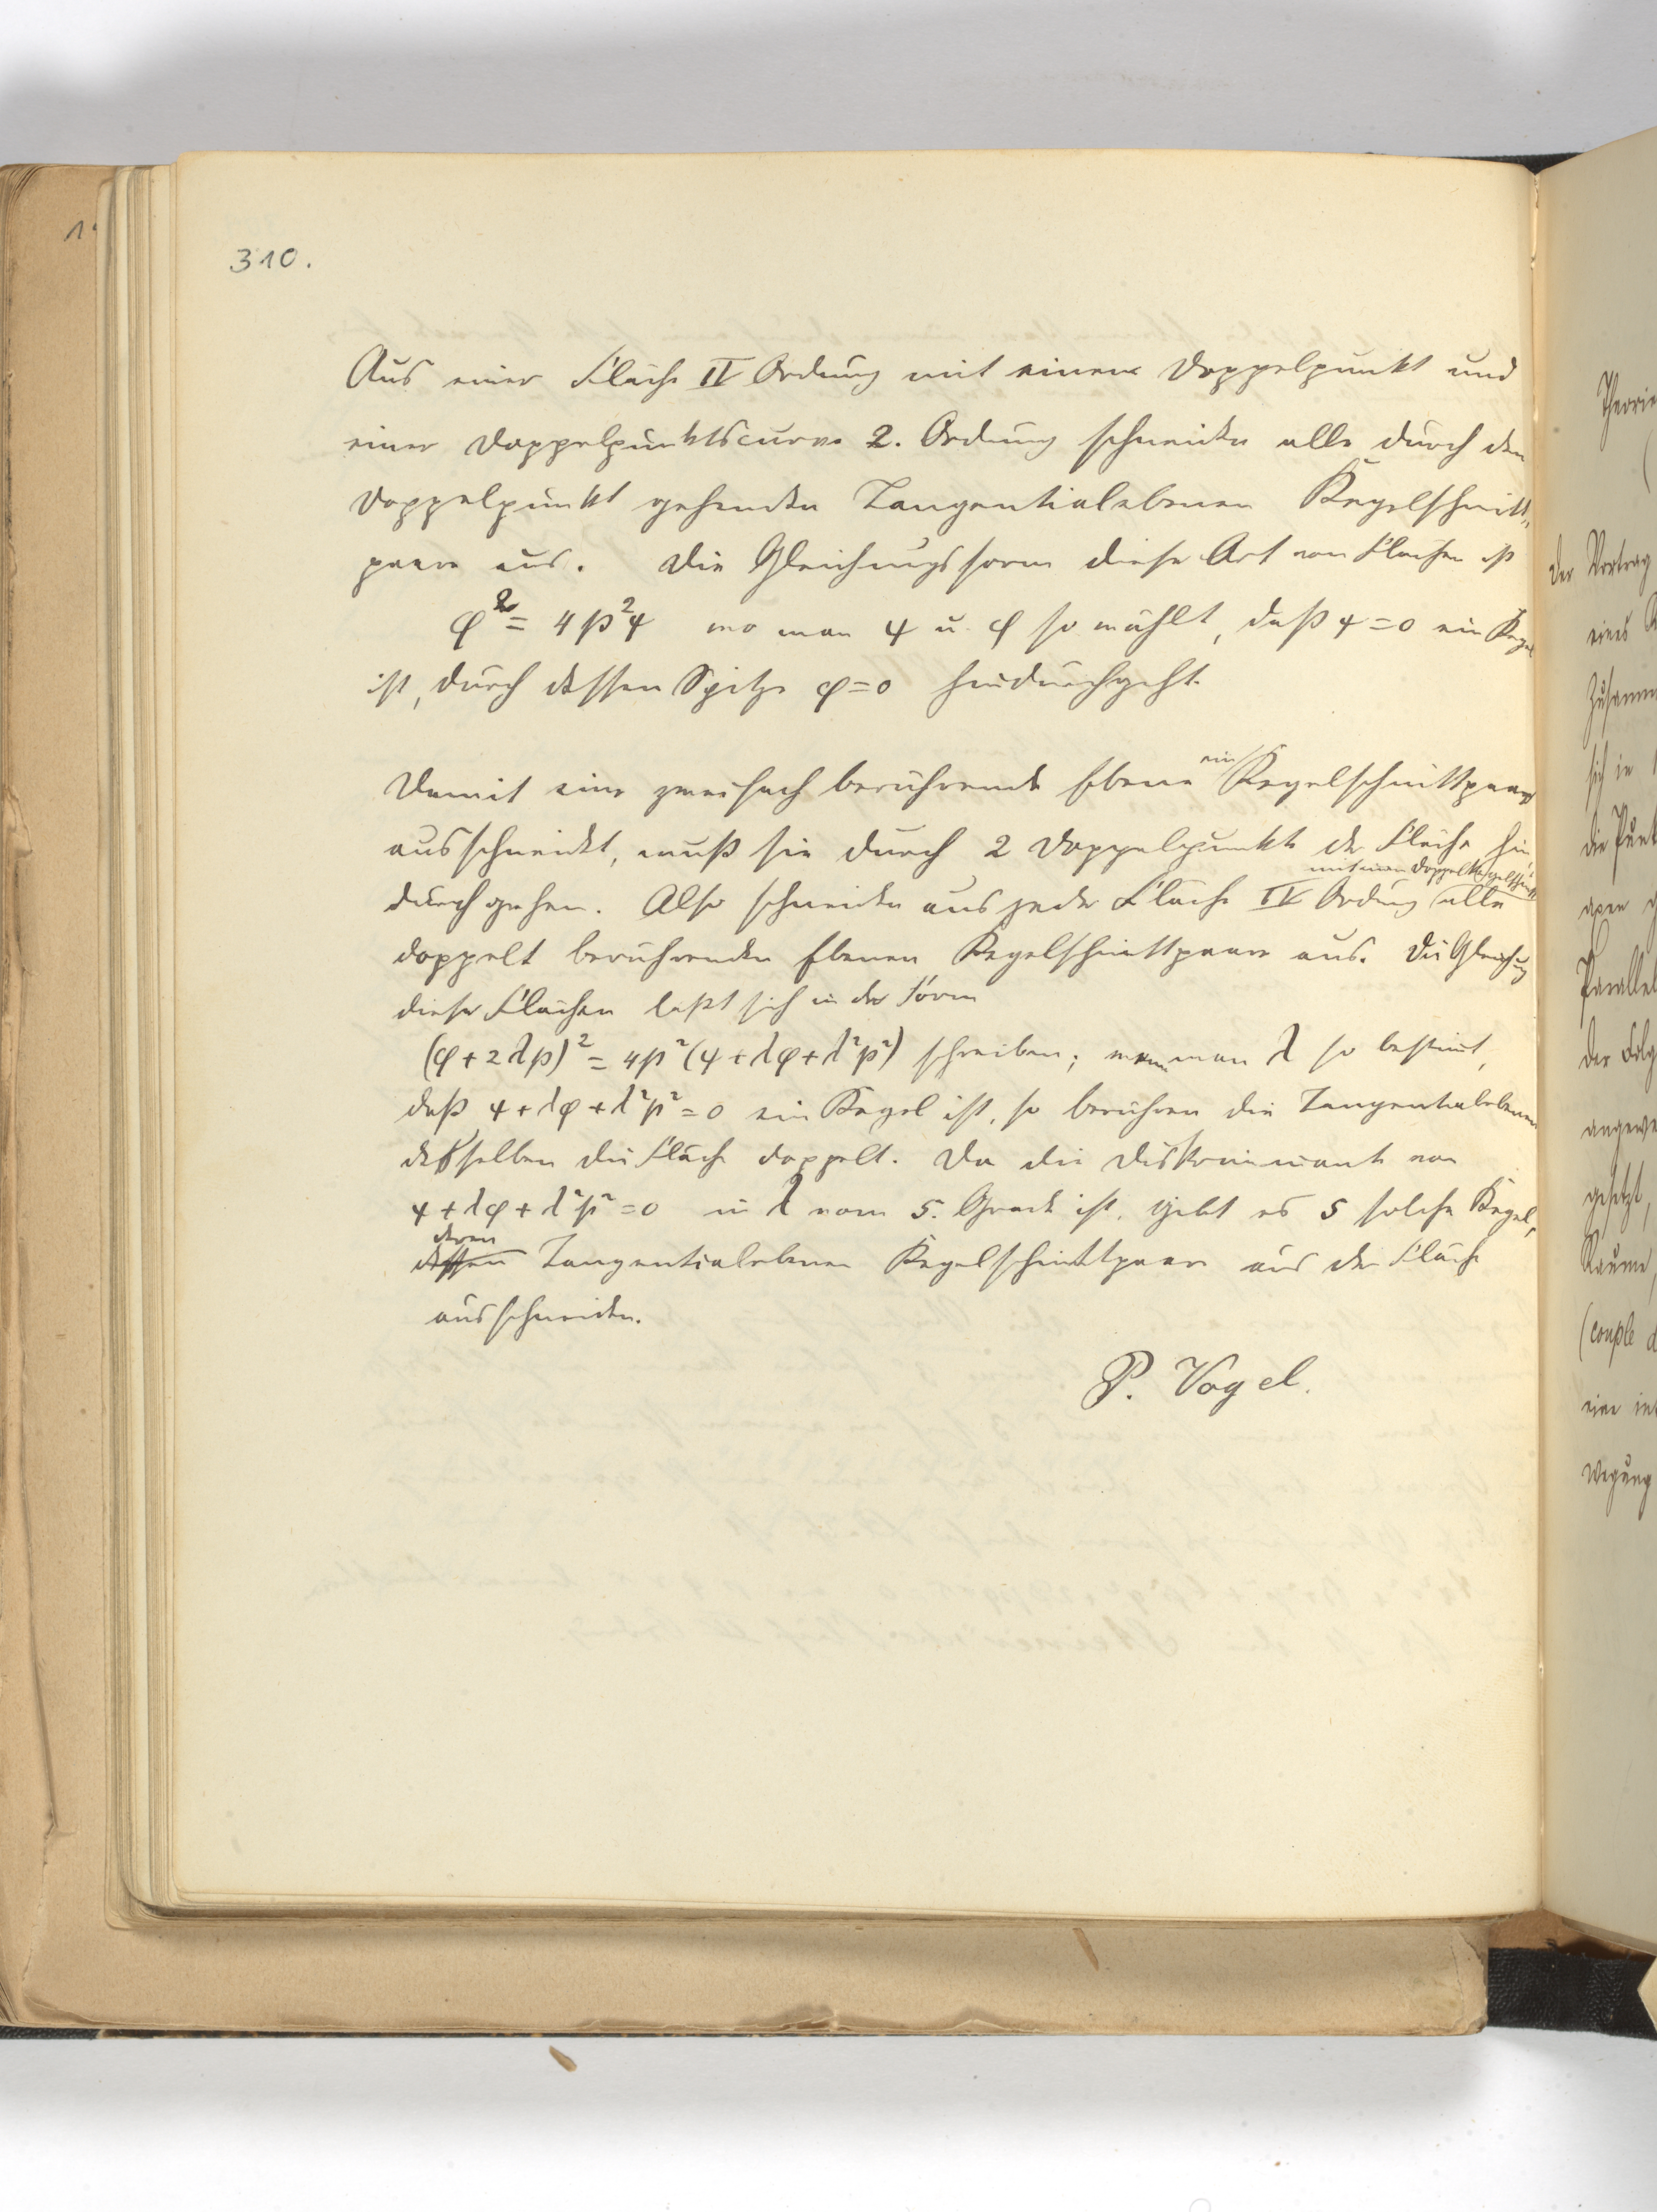 310.
Aus einer Fläche IV Ordnung mit einem Doppelpunkt und
einer Doppelpunktscurve 2. Ordnung schneiden alle durch den
Doppelpunkt gehenden Tangentialebenen Kegelschnitt-
paare aus. Die Gleichungsform dieser Art von Flächen ist
φ² = 4p²ψ wo man ψ u. φ so wählt, daß ψ=0 ein Kegel
ist, durch dessen Spitze φ=0 hindurchgeht.
Damit eine zweifach berührende Ebene ein Kegelschnittpaar
ausschneidet, muß sie durch 2 Doppelpunkte der Fläche hin-
mit einem Doppelkegelschnitt
durchgehen. Also schneiden aus jeder Fläche IV Ordnung alle
doppelt berührenden Ebenen Kegelschnittpaare aus. Die Gleichung
dieser Flächen läßt sich in der Form
(φ+2λp)² = 4p²(ψ+λφ+λ²p²) schreiben; wenn man λ so bestimt,
daß ψ+λφ+λ²p²=0 ein Kegel ist, so berühren die Tangentialebenen
desselben die Fläche doppelt. Da die Diskriminante von
ψ+λφ+λ²p²=0 in λ vom 5. Grade ist, giebt es 5 solche Kegel,
deren
dessen Tangentialebenen Kegelschnittpaare aus der Fläche
ausschneiden.
P. Vogel.
Theorie
(
Der Vortrag
eines
Zusamm
sich in
die Punk
axen
Parallel
der Folg
angewe
gesetzt,
Raume,
(couple d
eine in
wegung